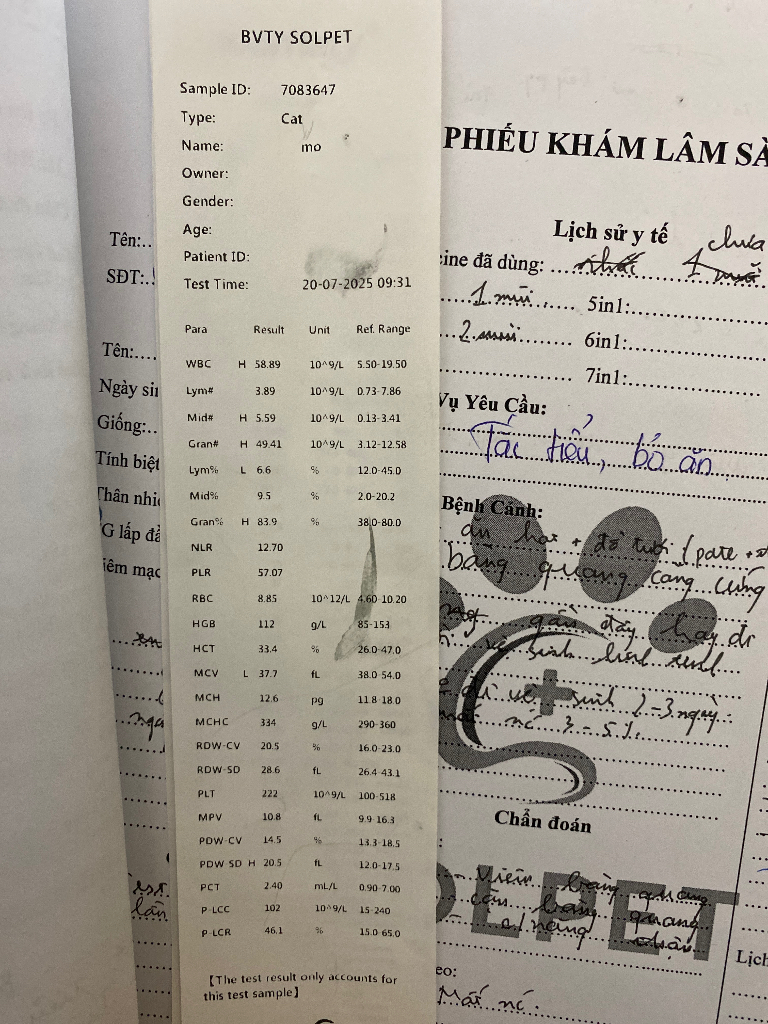 BVTY SOLPET
Sample ID: 7083647
Type: Cat
Name: mo
Owner:
Gender:
Age:
Patient ID:
Test Time: 20-07-2025 09:31
Para Result Unit Ref. Range
WBC H 58.89 10^9/L 5.50-19.50
Lym# 3.89 10^9/L 0.73-7.86
Mid# H 5.59 10^9/L 0.13-3.41
Gran# H 49.41 10^9/L 3.12-12.58
Lym% L 6.6 % 12.0-45.0
Mid% 9.5 % 2.0-20.2
Gran% H 83.9 % 38.0-80.0
NLR 12.70
PLR 57.07
RBC 8.85 10^12/L 4.60-10.20
HGB 112 g/L 85-153
HCT 33.4 % 26.0-47.0
MCV L 37.7 fL 38.0-54.0
MCH 12.6 pg 11.8-18.0
MCHC 334 g/L 290-360
RDW-CV 20.5 % 16.0-23.0
RDW-SD 28.6 fL 26.4-43.1
PLT 222 10^9/L 100-518
MPV 10.8 fL 9.9-16.3
PDW-CV 14.5 % 13.3-18.5
PDW-SD H 20.5 fL 12.0-17.5
PCT 2.40 mL/L 0.90-7.00
P-LCC 102 10^9/L 15-240
P-LCR 46.1 % 15.0-65.0
【The test result only accounts for
this test sample】
Tên:
SĐT:
Tên:
Ngày sin
Giống:
Tính biệt
Thân nhi
G lấp đầ
iêm mạc
PHIẾU KHÁM LÂM SÀ
Lịch sử y tế
chưa
cine đã dùng:
1 mũi 5in1:
2 mũi 6in1:
7in1:
Vụ Yêu Cầu:
Tắc tiểu, bỏ ăn
Bệnh Cảnh:
ăn hạt + đồ tươi (pate +
bàng quang căng cứng
gần đây hay đi
vệ sinh linh tinh
đi vệ sinh 2-3 ngày
mất nc 3-5%
Chẩn đoán
- Viêm bàng quang
cặn bàng quang
c/năng thận
LPET
Lịch
eo:
Mất nc.